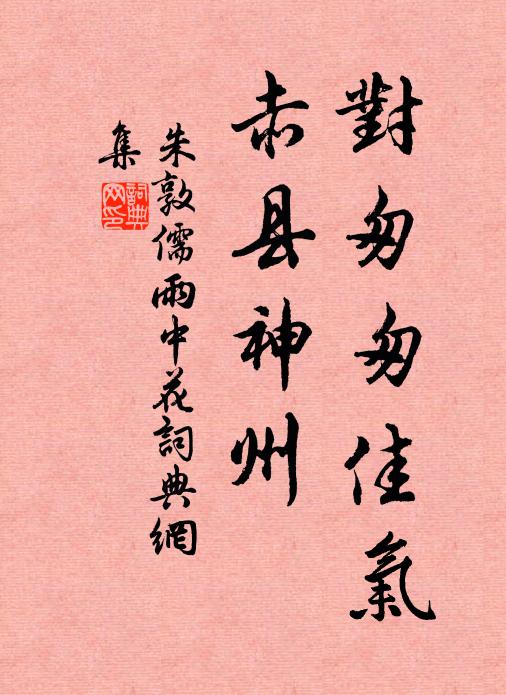 對匆匆佳氣
赤县神州
朱敦儒雨中花詞典網
集
詞典网印